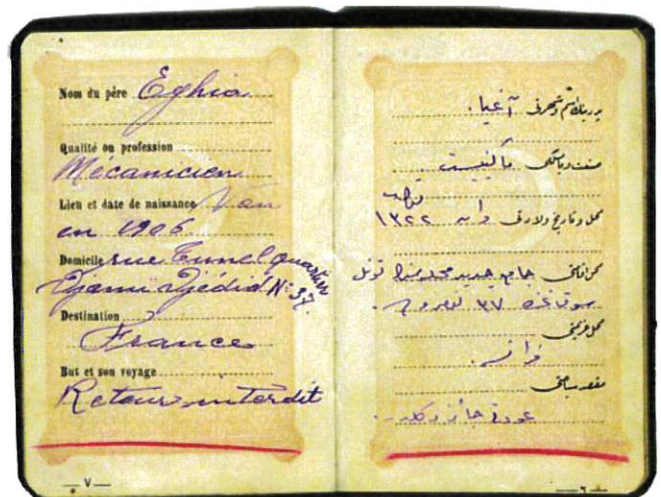 Nom du père Eghia
Qualité ou profession
Mécanicien
Lieu et date de naissance Van
en 1906
Domicile rue Tunnel quartier
Djami Djédid N° 37.
Destination
France
But et son voyage
Retour interdit
V
پدرینك اسم و شهرتی آغیا.
ماكنیست
محل و تاریخ ولادتی وان ١٣٢٢
جامع جدید محله سنده تونل
٣٧ نومرو
فرانسه.
عودتی جائز دكلدر.
٦